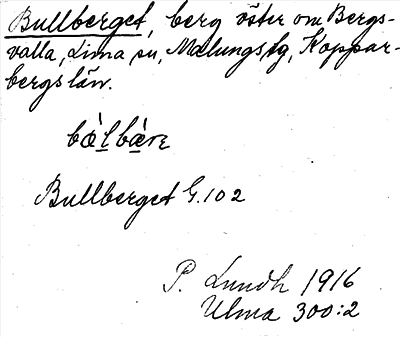 Bullberget, berg väster om Bergs-
valla, Lima sn, Malungs tg, Koppar-
bergs län.
Bullberget G.102
P. Lundh 1916
Ulma 300:2